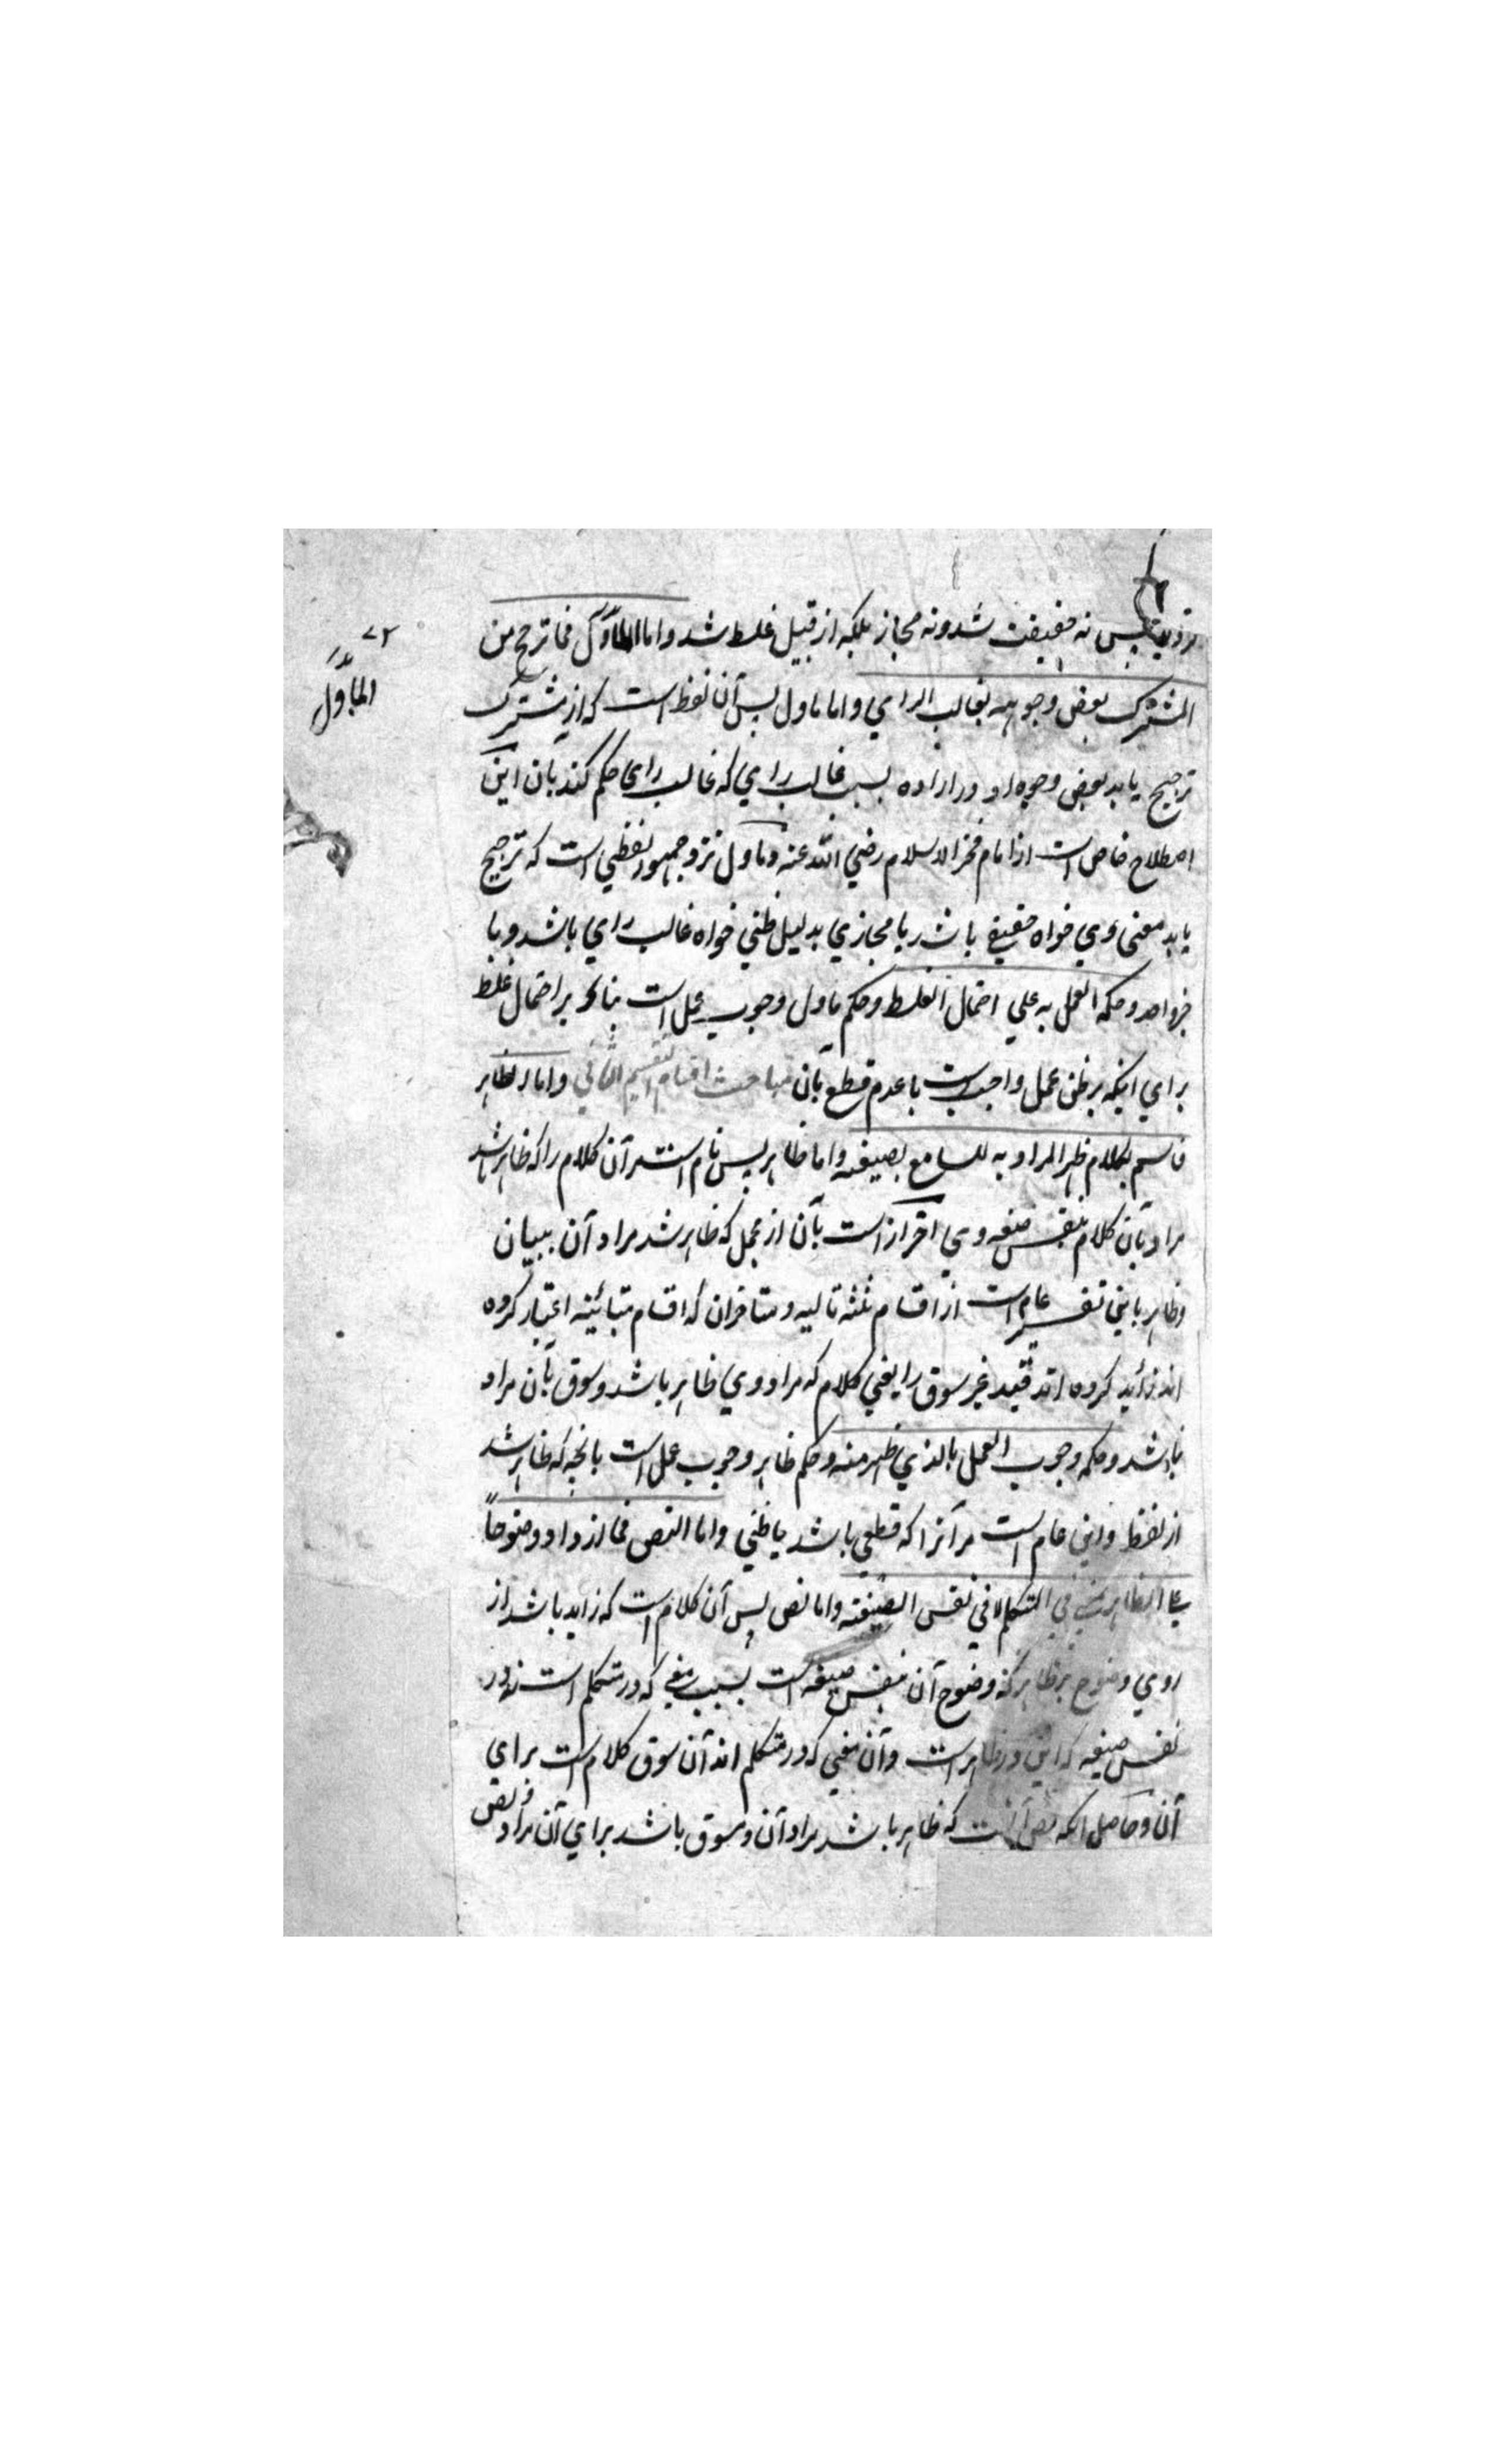 پس نه حقیقت شد ونه مجاز بلکه از قبیل غلط شد واما المأوّل فما ترجح من
المشترک بعض وجوهه بغالب الرای واما ماول پس آن لفظ است که از مشترک
ترجیح یابد بعض وجوه او در اراده بسبب غالب رای که غالب رای حکم کند بان این
اصطلاح خاص است از امام فخر الاسلام رضی الله عنه وماول نزد جمهور لفظی است که ترجیح
یابد معنی وی خواه حقیقی باشد یا مجازی بدلیل ظنی خواه غالب رای باشد ویا
خبر واحد وحکمه العمل به علی احتمال الغلط وحکم ماول وجوب عمل است بنا بر احتمال غلط
برای اینکه بر ظن عمل واجب است با عدم قطع بان مباحث اقسام التقسیم الثانی واما الظاهر
فاسم لکلام ظهر المراد به للسامع بصیغته واما ظاهر پس نام است مر آن کلام را که ظاهر باشد
مراد بآن کلام بنفس صیغه وی احتراز است بآن از مجمل که ظاهر شد مراد آن ببیان
وظاهر باین تفسیر عام است از اقسام ثلثه تالیه ومتاخران که اقسام متبائینه اعتبار کرده
اند زائد کرده اند قید غیر سوق را یعنی کلام که مراد وی ظاهر باشد وسوق بآن مراد
نباشد وحکمه وجوب العمل بالذی ظهر منه وحکم ظاهر وجوب عمل است بانچه که ظاهر شد
از لفظ واین عام است مر آنرا که قطعی باشد یا ظنی واما النص فما ازداد وضوحاً
علی الظاهر بمعنی فی المتکلم لا فی نفس الصیغته واما نص پس آن کلام است که زاید باشد از
روی وضوح بر ظاهر که وضوح آن بنفس صیغه است بسبب معنی که در متکلم است نه در
نفس صیغه که این در ظاهر است وآن معنی که در متکلم اند آن سوق کلام است برای
آن وحاصل آنکه نص آنست که ظاهر باشد مراد آن ومسوق باشد برای آن مراد ونص
۷۲
المأوّل